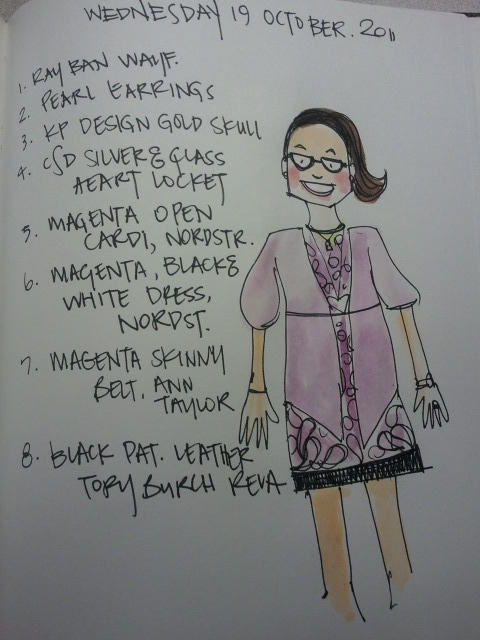 WEDNESDAY 19 OCTOBER. 2011
1. RAY BAN WAYF.
2. PEARL EARRINGS
3. KP DESIGN GOLD SKULL
4. CSD SILVER & GLASS
HEART LOCKET
5. MAGENTA OPEN
CARDI, NORDSTR.
6. MAGENTA, BLACK &
WHITE DRESS,
NORDST.
7. MAGENTA SKINNY
BELT. ANN
TAYLOR
8. BLACK PAT. LEATHER
TORY BURCH REVA